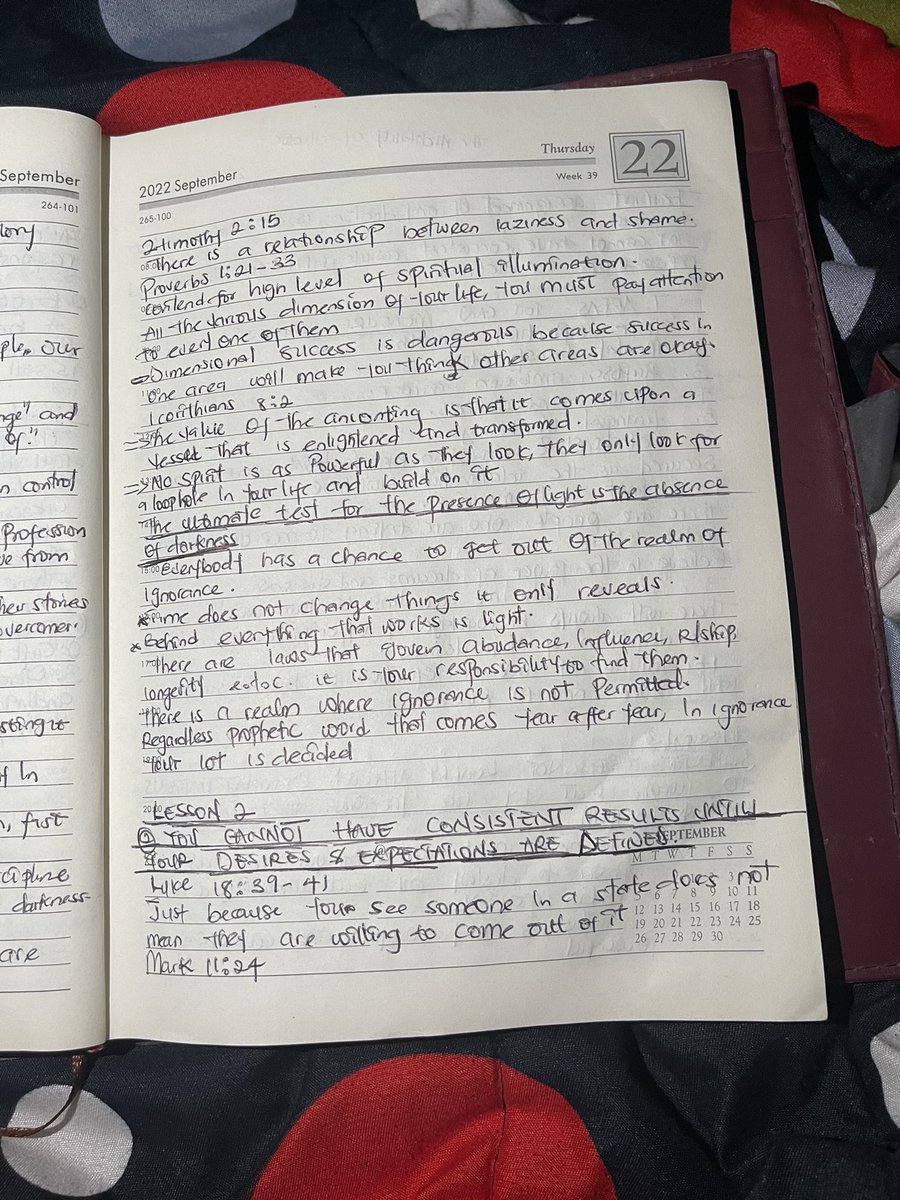 September
264-101
lory
ple, our
nge" and
of."
n control
Profession
e from
her stories
overcomer.
sting it
f In
n, first
cipline
darkness
are
2022 September
Thursday
22
Week 39
265-100
2 timothy 2:15
There is a relationship between laziness and shame.
Proverbs 1:21-33
contend for high level of spiritual illumination.
All the various dimension of your life, you must pay attention
to every one of them
Dimensional success is dangerous because success in
one area will make you think other areas are okay.
1 corithians 8:2
The value of the anointing is that it comes upon a
vessel that is enlightened and transformed.
No spirit is as Powerful as they look, they only look for
a loophole in your life and build on it
The ultimate test for the presence of light is the absence
of darkness
everybody has a chance to get out of the realm of
Ignorance.
*Time does not change things it only reveals.
*Behind everything that works is light.
There are laws that govern abudance, Influence, R/ship
longevity e.t.c. it is your responsibility to find them.
There is a realm where ignorance is not Permitted.
Regardless prophetic word that comes year after year, In ignorance
Your lot is decided
LESSON 2
① YOU CANNOT HAVE CONSISTENT RESULTS UNTILL
YOUR DESIRES & EXPECTATIONS ARE DEFINED.
Luke 18:39-41
Just because you see someone in a state does not
mean they are willing to come out of it
Mark 11:24
SEPTEMBER
M T W T F S S
5 6 7 8 9 10 11
12 13 14 15 16 17 18
19 20 21 22 23 24 25
26 27 28 29 30